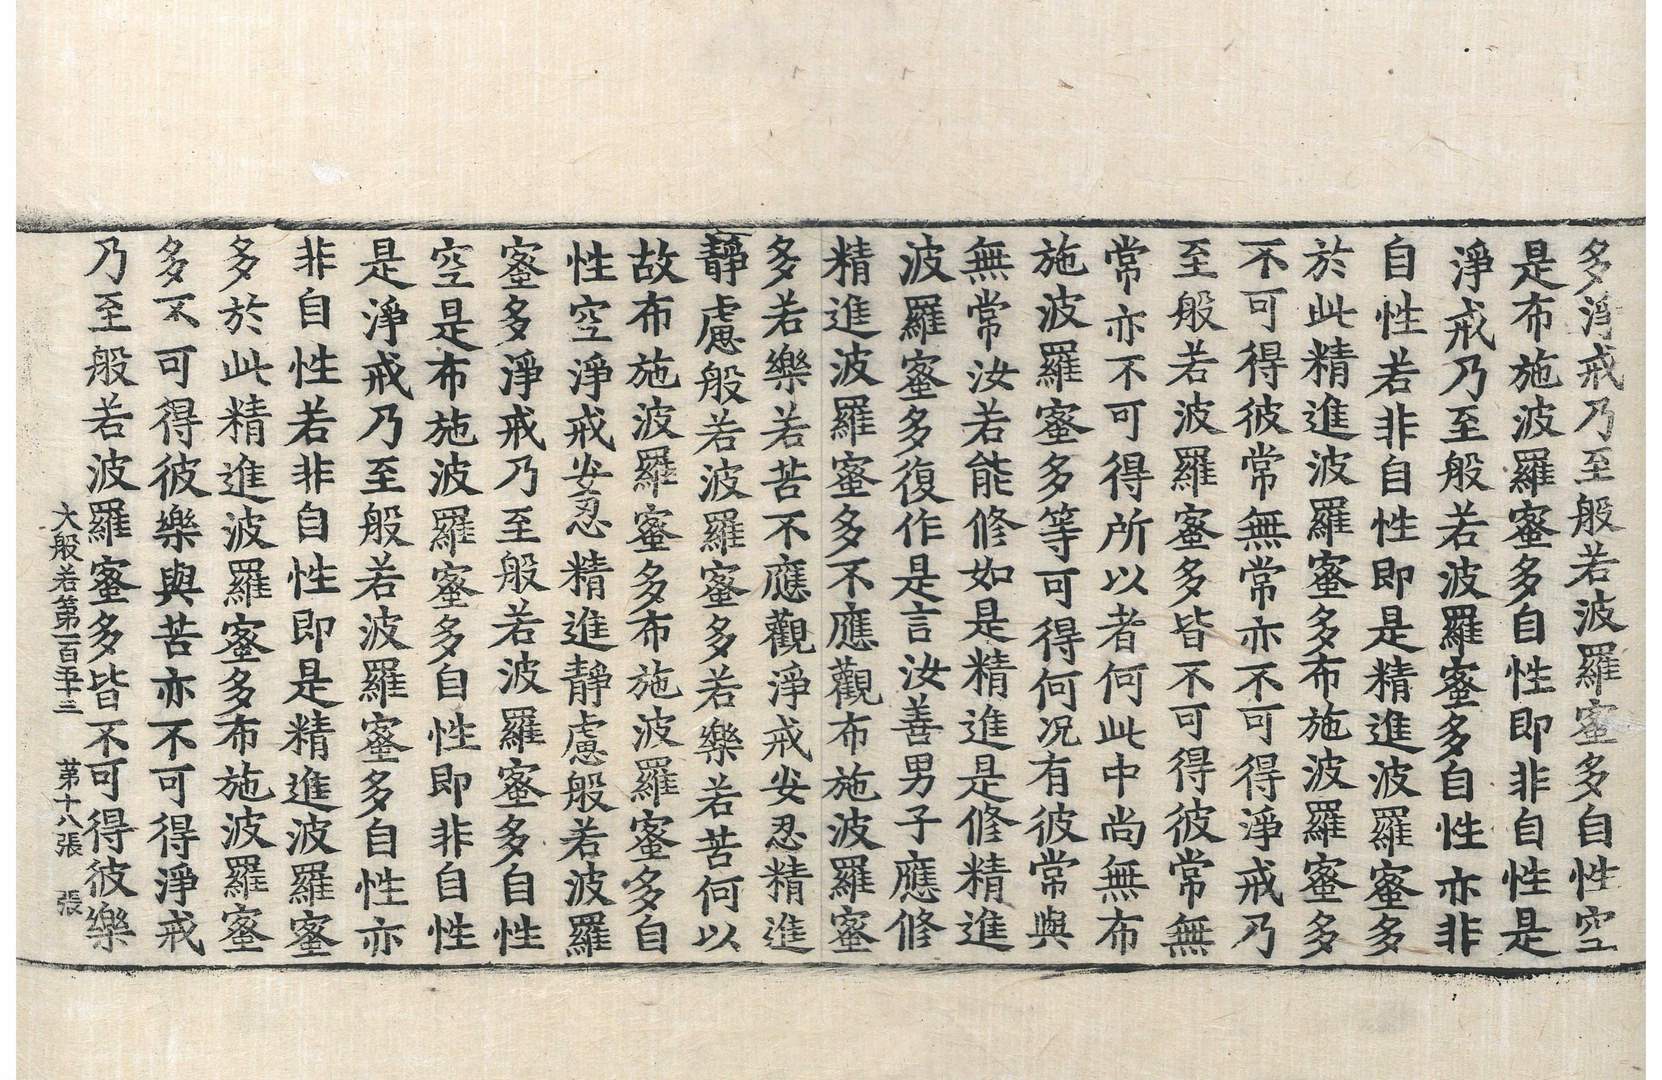 多淨戒乃至般若波羅蜜多自性空
是布施波羅蜜多自性即非自性是
淨戒乃至般若波羅蜜多自性亦非
自性若非自性即是精進波羅蜜多
於此精進波羅蜜多布施波羅蜜多
不可得彼常無常亦不可得淨戒乃
至般若波羅蜜多皆不可得彼常無
常亦不可得所以者何此中尚無布
施波羅蜜多等可得何况有彼常與
無常汝若能修如是精進是修精進
波羅蜜多復作是言汝善男子應修
精進波羅蜜多不應觀布施波羅蜜
多若樂若苦不應觀淨戒安忍精進
靜慮般若波羅蜜多若樂若苦何以
故布施波羅蜜多布施波羅蜜多自
性空淨戒安忍精進靜慮般若波羅
蜜多淨戒乃至般若波羅蜜多自性
空是布施波羅蜜多自性即非自性
是淨戒乃至般若波羅蜜多自性亦
非自性若非自性即是精進波羅蜜
多於此精進波羅蜜多布施波羅蜜
多不可得彼樂與苦亦不可得淨戒
乃至般若波羅蜜多皆不可得彼樂
大般若第一百五十三 第十八張 張